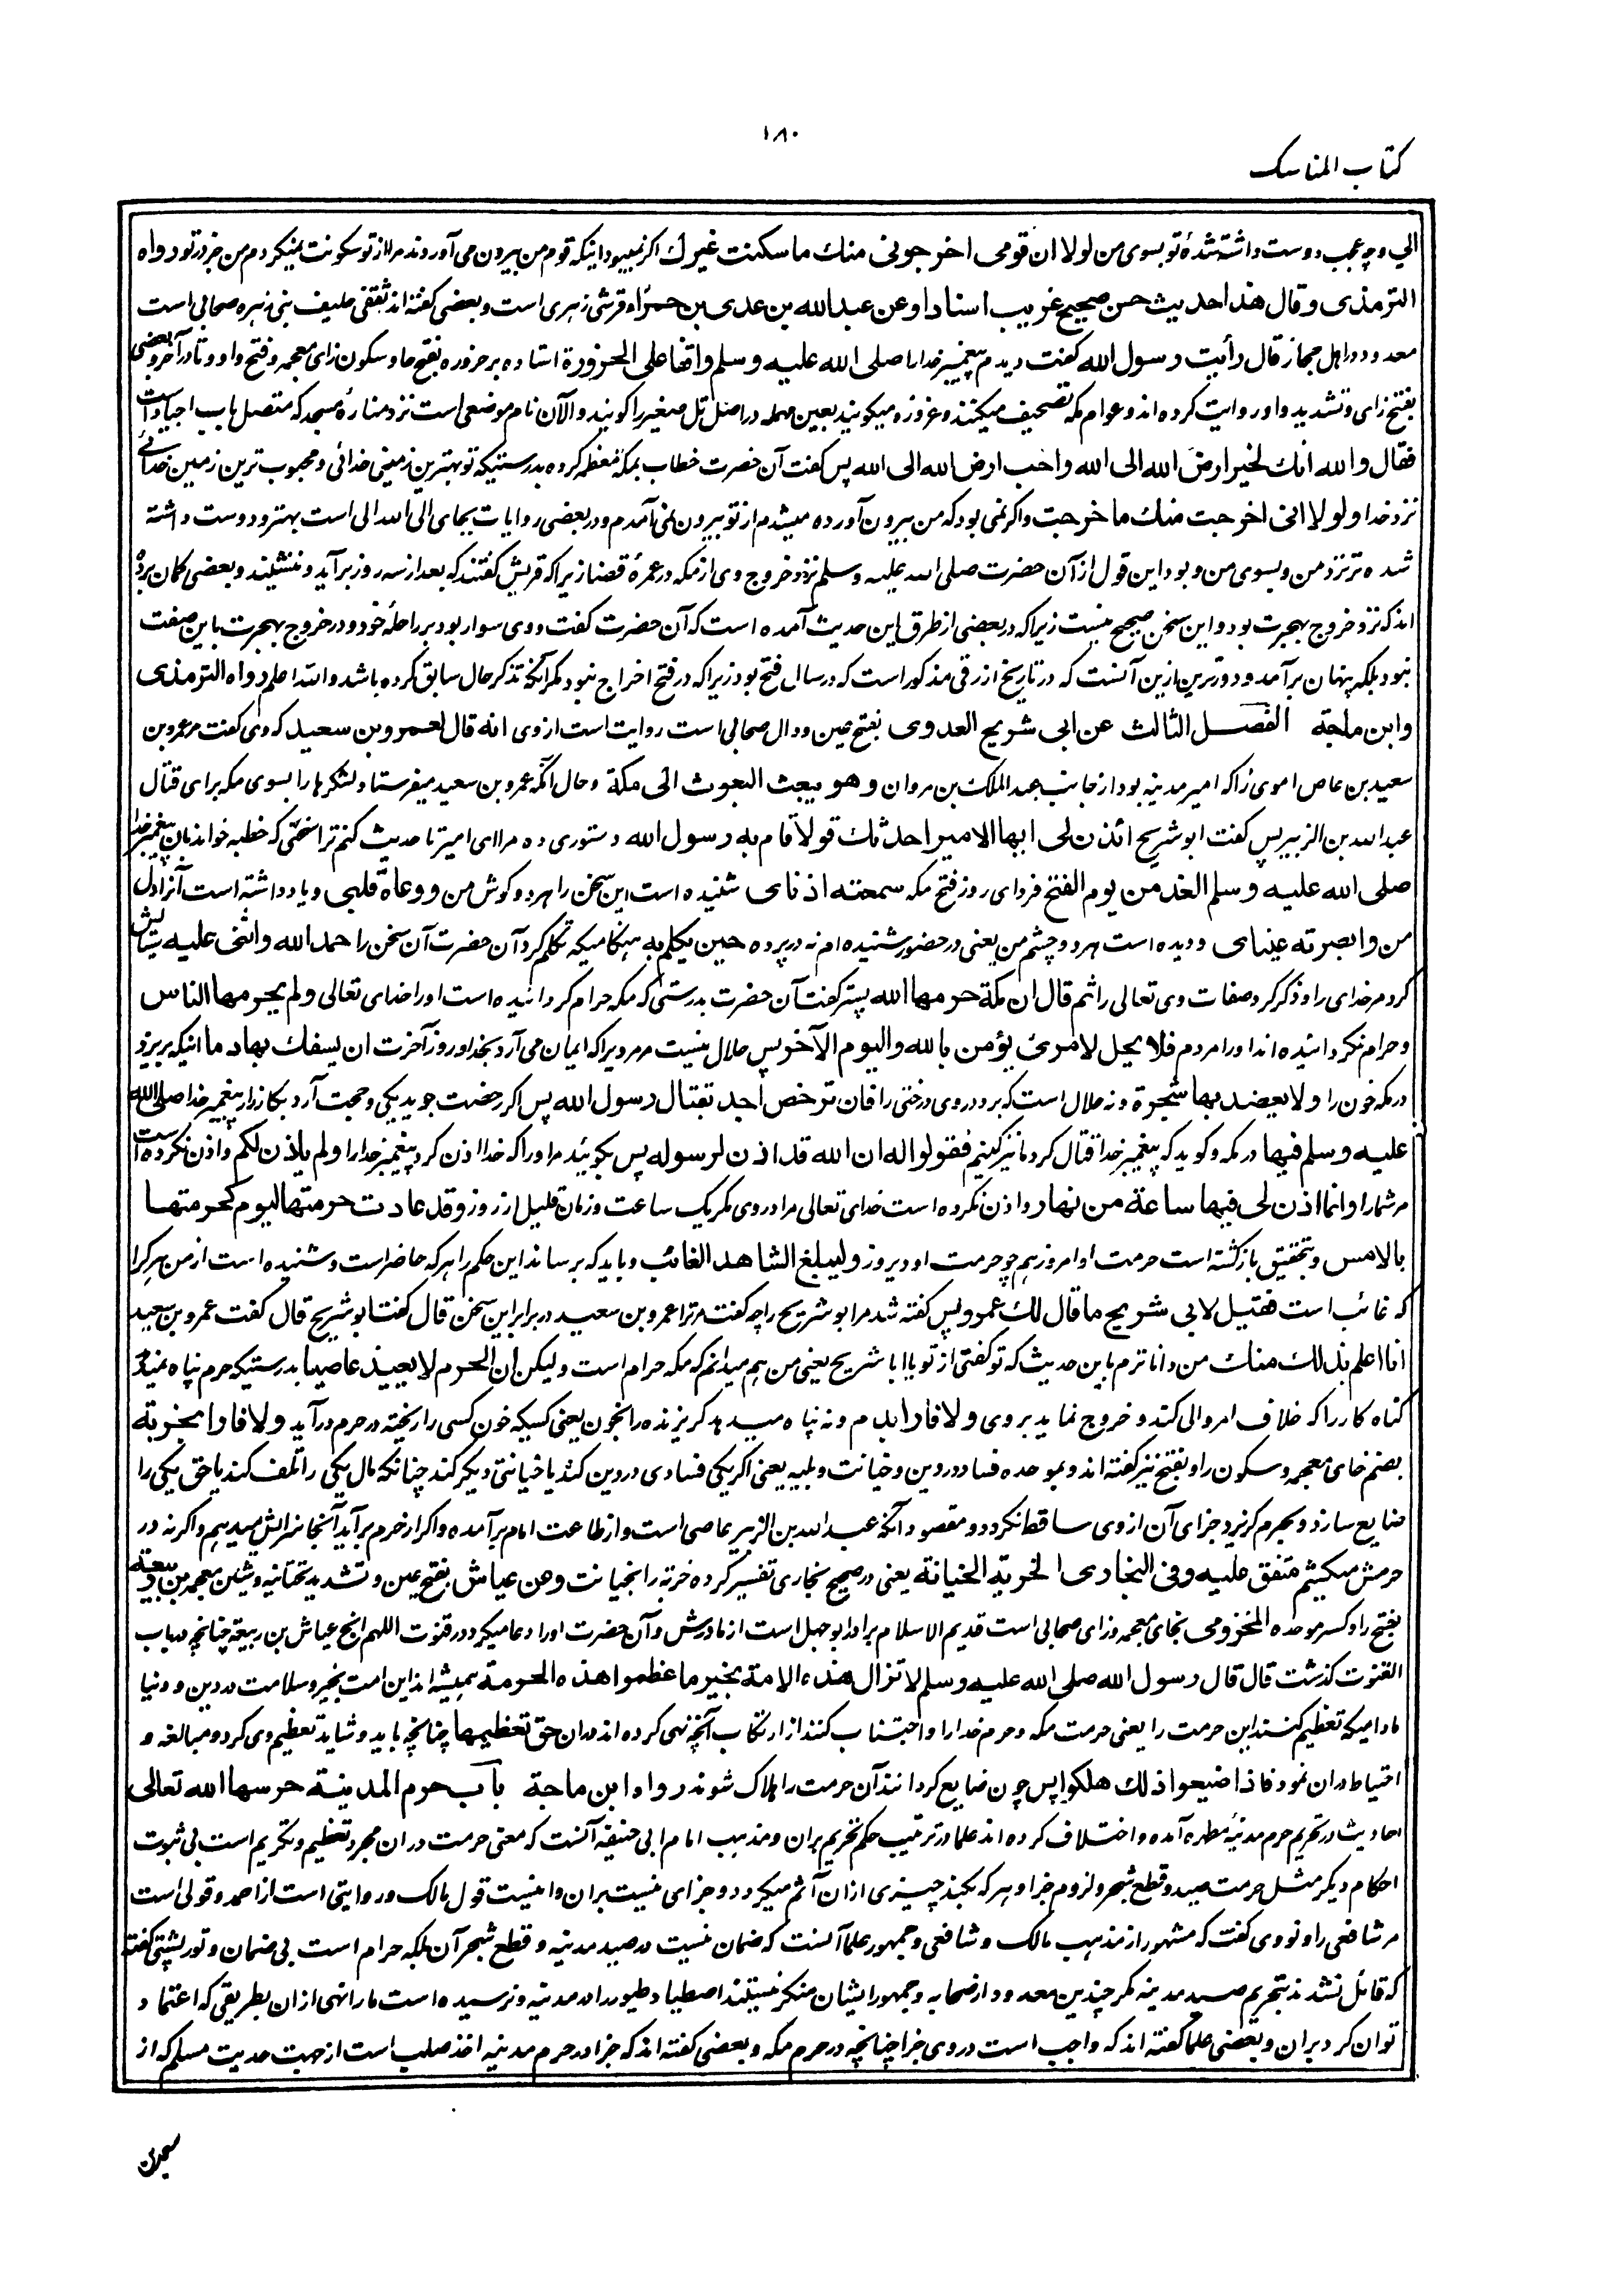 ۱۸۰
کتاب المناسک
الي و چه عجب دوست داشته شدهٔ تو بسوی من لولا ان قومی اخرجونی منك ما سکنت غیرك اگر نمیبود اینکه قوم من بیرون می آوردند مرا از تو سکونت نمیکردم من جز در تو رواه
الترمذی وقال هذا حدیث حسن صحیح غریب اسنادا وعن عبدالله بن عدی بن حمراء قرشی زهری است و بعضی گفته اند ثقفی حلیف بنی زهره صحابی است
معدود در اهل حجاز قال رأیت رسول الله گفت دیدم پیغمبر خدا را صلی الله علیه وسلم واقفا علی الحزورة استاده بر حزوره بفتح حا و سکون زای معجمه و فتح واو و تا در آخر و بعضی
بفتح زای و تشدید واو روایت کرده اند و عوام مکه تصحیف میکنند و عزوزه میگویند بعین مهمله در اصل تل صغیر را گویند و الآن نام موضعی است نزد منارهٔ مسجد که متصل باب اجیاد است
فقال والله انك لخیر ارض الله الی الله واحب ارض الله الی الله پس گفت آن حضرت خطاب بمکه معظمه کرده بدرستیکه تو بهترین زمینی خدائی و محبوب ترین زمین خدائے
نزد خدا ولولا انی اخرجت منك ما خرجت و اگر نمی بود که من بیرون آورده میشدم از تو بیرون نمی آمدم و در بعضی روایات بجای الی الله الی است بهتر و دوست داشته
شده تر نزد من و بسوی من و بود این قول از آن حضرت صلی الله علیه وسلم نزد خروج وی از مکه در عمرهٔ قضا زیرا که قریش گفتند که بعد از سه روز برآید و ننشیند و بعضی گمان برده
اند که نزد خروج بهجرت بود و این سخن صحیح نیست زیرا که در بعضی از طرق این حدیث آمده است که آن حضرت گفت و وی سوار بود بر راحلهٔ خود و در خروج بهجرت باین صفت
نبود بلکه پنهان برآمد و دورترین ازین آنست که در تاریخ ازرقی مذکور است که در سال فتح بود زیرا که در فتح اخراج نبود مگر آنکه تذکر حال سابق کرده باشد والله اعلم رواه الترمذی
وابن ماجة الفصل الثالث عن ابی شریح العدوی بفتح عین و دال صحابی است روایت است از وی انه قال لعمرو بن سعید که وی گفت مر عمرو بن
سعید بن عاص اموی را که امیر مدینه بود از جانب عبد الملک بن مروان وهو یبعث البعوث الی مکة و حال آنکه عمرو بن سعید میفرستاد لشکرها را بسوی مکه برای قتال
عبد الله بن الزبیر پس گفت ابو شریح ائذن لی ایها الامیر احدثك قولا قام به رسول الله دستوری ده مرا ای امیر تا حدیث کنم ترا سخنی که خطبه خواند بآن پیغمبر خدا
صلی الله علیه وسلم الغد من یوم الفتح فردای روز فتح مکه سمعته اذنای شنیده است این سخن را هر دو گوش من ووعاه قلبی و یاد داشته است آنرا دل
من وابصرته عینای و دیده است هر دو چشم من یعنی در حضور شنیده ام نه در پرده حین تکلم به هنگامیکه تکلم کرد آن حضرت آن سخن را حمد الله واثنی علیه ستایش
کرد مر خدای را و ذکر کرد صفات وی تعالی را ثم قال ان مکة حرمها الله پستر گفت آن حضرت بدرستی که مکه حرام گردانیده است او را خدای تعالی ولم یحرمها الناس
و حرام نگردانیده اند او را مردم فلا یحل لامرئ یؤمن بالله والیوم الآخر پس حلال نیست مر مردیرا که ایمان می آرد بخدا و روز آخرت ان یسفك بها دما اینکه بریزد
در مکه خون را ولا یعضد بها شجرة و نه حلال است که ببرد در وی درختی را فان ترخص احد بقتال رسول الله پس اگر رخصت جوید یکی و حجت آرد بکارزار پیغمبر خدا صلی الله
علیه وسلم فیها در مکه و گوید که پیغمبر خدا قتال کرد ما نیز کنیم فقولوا له ان الله قد اذن لرسوله پس بگوئید مر او را که خدا اذن کرد پیغمبر خدا را ولم یأذن لکم و اذن نکرده است
مر شما را وانما اذن لی فیها ساعة من نهار و اذن نکرده است خدای تعالی مرا در وی مگر یک ساعت و زمان قلیل از روز وقد عادت حرمتها الیوم کحرمتها
بالامس و بتحقیق بازگشته است حرمت او امروز همچو حرمت او دیروز ولیبلغ الشاهد الغائب و باید که برساند این حکم را هر که حاضر است و شنیده است از من هر کرا
که غائب است فقیل لابی شریح ما قال لك عمرو پس گفته شد مر ابو شریح را چه گفت مر ترا عمرو بن سعید در برابر این سخن قال گفت ابو شریح قال گفت عمرو بن سعید
انا اعلم بذلك منك من داناترم باین حدیث که تو گفتی از تو یا ابا شریح یعنی من هم میدانم که مکه حرام است ولیکن ان الحرم لا یعیذ عاصیا بدرستیکه حرم پناه نمیدهد
گناه کار را که خلاف امر والی کند و خروج نماید بر وی ولا فارا بدم و نه پناه میدهد گریزنده را بخون یعنی کسیکه خون کسی را ریخته در حرم درآید ولا فارا بخربة
بضم خای معجمه و سکون را و بفتح نیز گفته اند و بموحده فساد در دین و خیانت و بلیه یعنی اگر یکی فسادی در دین کند یا خیانتی دیگر کند چنانکه مال یکی را تلف کند یا حق یکی را
ضایع سازد و بحرم گریزد جزای آن از وی ساقط نگردد و مقصود آنکه عبد الله بن الزبیر عاصی است و از طاعت امام برآمده و اگر از حرم برآید آنجا سزایش میدهیم و اگر نه در
حرمش میکشیم متفق علیه وفی البخاری الخربة الخیانة یعنی در صحیح بخاری تفسیر کرده خربة را بخیانت وعن عیاش بفتح عین و تشدید تحتانیه و شین معجمه بن ابی ربیعة
بفتح را و کسر موحده المخزومی بخای معجمه و زای صحابی است قدیم الاسلام برادر ابو جهل است از مادرش و آن حضرت او را دعا میکرد در قنوت اللهم انج عیاش بن ربیعة چنانچه در باب
القنوت گذشت قال قال رسول الله صلی الله علیه وسلم لا تزال هذه الامة بخیر ما عظموا هذه الحرمة همیشه اند این امت بخیر و سلامت در دین و دنیا
مادامیکه تعظیم کنند این حرمت را یعنی حرمت مکه و حرم خدا را و اجتناب کنند از ارتکاب آنچه نهی کرده اند در ان حق تعظیمها چنانچه باید و شاید تعظیم وی کرد و مبالغه و
احتیاط در ان نمود فاذا ضیعوا ذلك هلکوا پس چون ضایع گردانند آن حرمت را هلاک شوند رواه ابن ماجة باب حرم المدینة حرسها الله تعالی
احادیث در تحریم حرم مدینهٔ مطهره آمده و اختلاف کرده اند علما در ترتیب حکم تحریم بران و مذهب امام ابی حنیفه آنست که معنی حرمت در ان مجرد تعظیم و تکریم است بی ثبوت
احکام دیگر مثل حرمت صید و قطع شجر و لزوم جزا و هر که بکند چیزی ازان آثم میگردد و جزای نیست بران و اینست قول مالک و روایتی است از احمد و قولی است
مر شافعی را و نووی گفت که مشهور از مذهب مالک و شافعی و جمهور علما آنست که ضمان نیست در صید مدینه و قطع شجر آن بلکه حرام است بی ضمان و تورپشتی گفته
که قائل نشدند بتحریم صید مدینه مگر چندین معدود از صحابه و جمهور ایشان منکر نیستند اصطیاد طیور را در مدینه و نرسیده است ما را نهی ازان بطریقی که اعتماد
توان کرد بران و بعضی علما گفته اند که واجب است در وی جزا چنانچه در حرم مکه و بعضی گفته اند که جزا در حرم مدینه اخذ سلب است از جهت حدیث مسلم که از